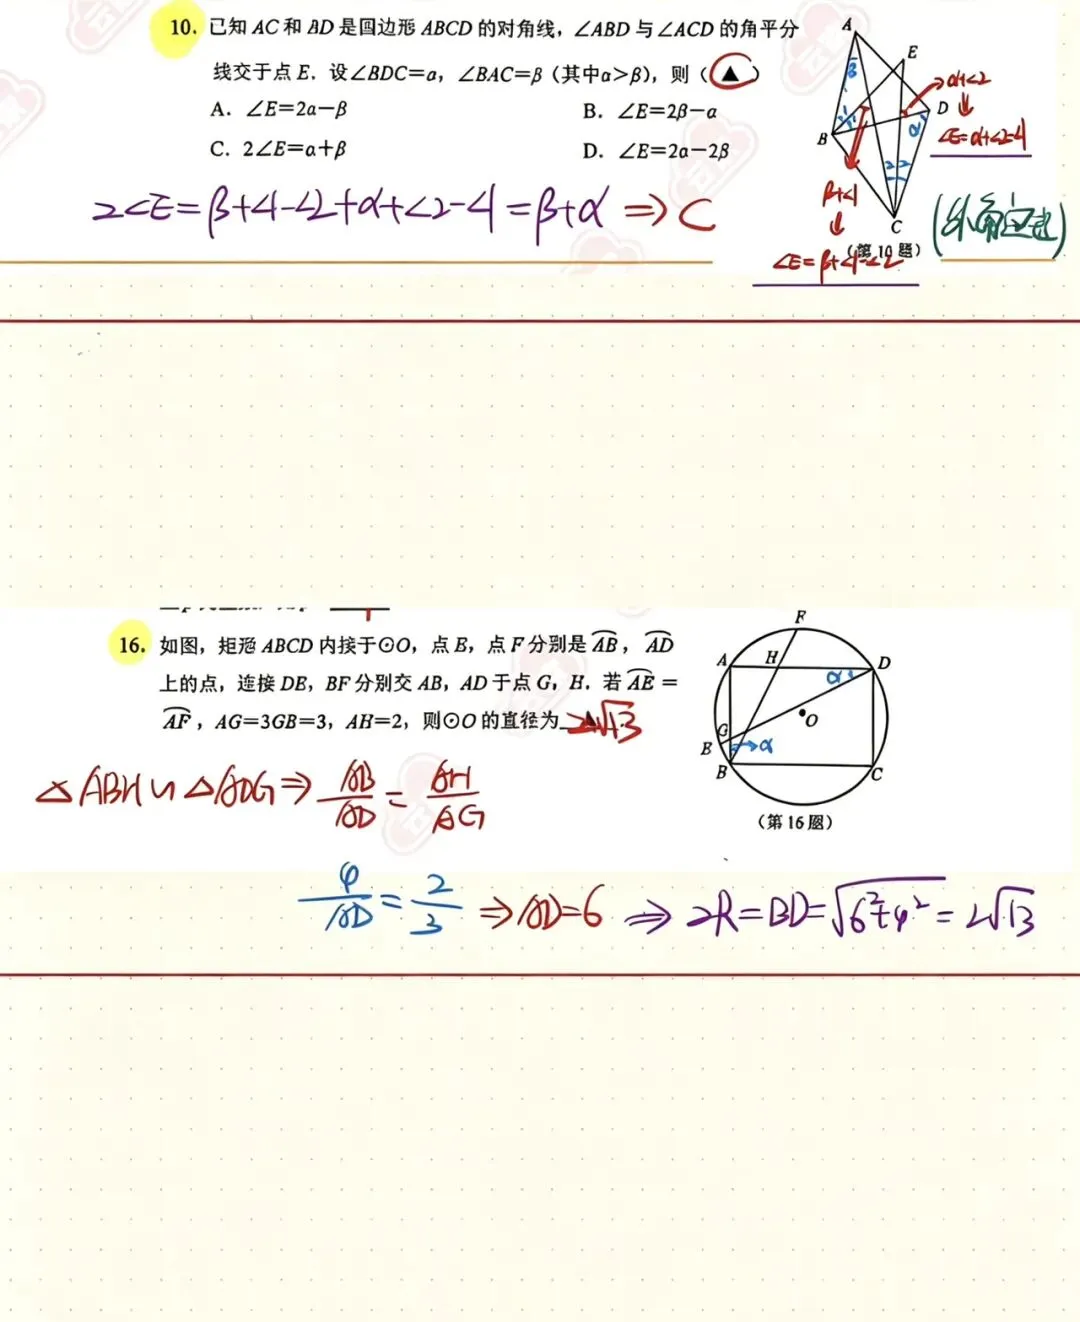 10. 已知 AC 和 BD 是四边形 ABCD 的对角线，∠ABD 与∠ACD 的角平分
线交于点 E．设∠BDC=α，∠BAC=β（其中α>β），则（▲）
A. ∠E=2α−β
B. ∠E=2β−α
C. 2∠E=α+β
D. ∠E=2α−2β
2∠E=β+∠1−∠2+α+∠2−∠1=β+α ⇒ C
A
E
D
B
C
β
α
1
1
2 2
α+∠2
∠E=α+∠2−∠1
β+∠1
∠E=β+∠1−∠2
（第 10 题）
(外角定理)
16. 如图，矩形 ABCD 内接于⊙O，点 E，点 F 分别是 AB，AD
上的点，连接 DE，BF 分别交 AB，AD 于点 G，H．若 AE =
AF，AG=3GB=3，AH=2，则⊙O 的直径为 2√13
F
A
H
D
α
O
G
E
α
B
C
（第 16 题）
△ABH∽△ADG⇒ AB/AD = AH/AG
4/AD = 2/3 ⇒ AD=6 ⇒ 2R=BD=√6²+4² = 2√13